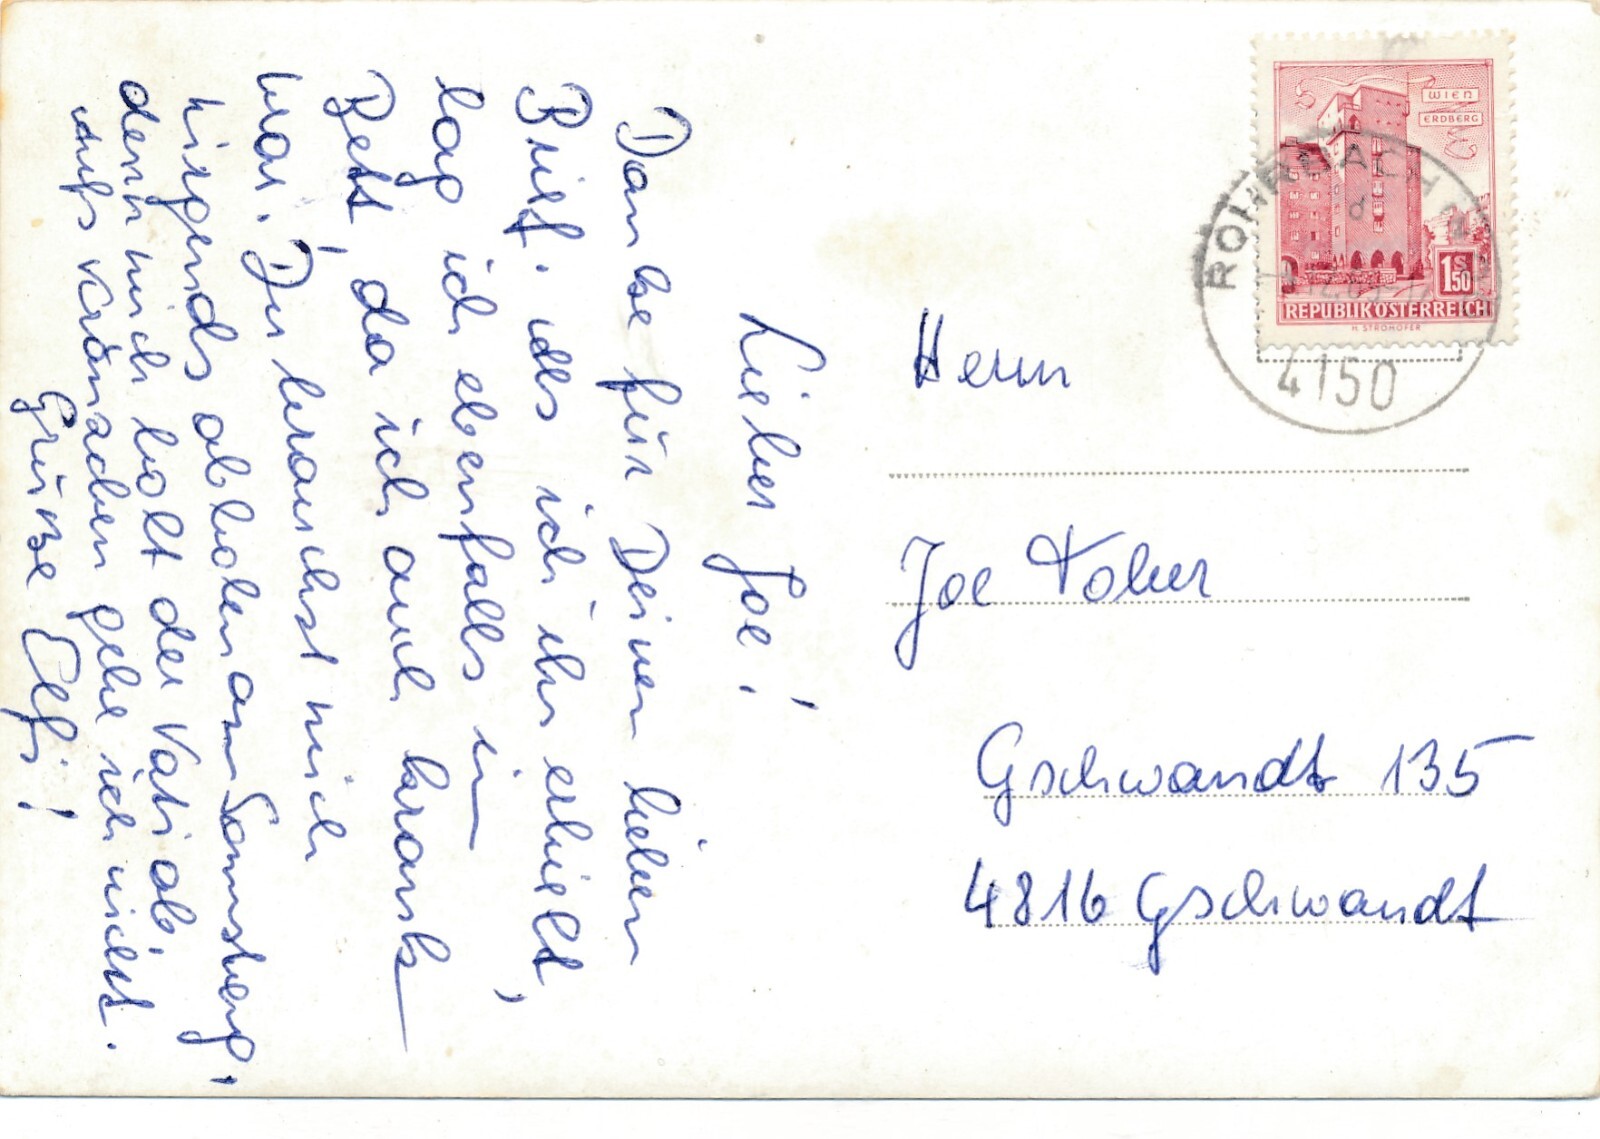 Lieber Joe!
Danke für Deinen lieben
Brief. Als ich ihn erhielt,
lag ich ebenfalls im
Bett, da ich auch krank
war. Du brauchst mich
nirgends abholen am Samstag,
denn mich holt der Vati ab.
Aufs Kränzchen gehe ich nicht.
Grüsse Elfi!
Herrn
Joe
Gschwandt 135
4816 Gschwandt
WIEN
ERDBERG
1 S 50
REPUBLIK ÖSTERREICH
H. STROHOFER
ROHRBACH
4150